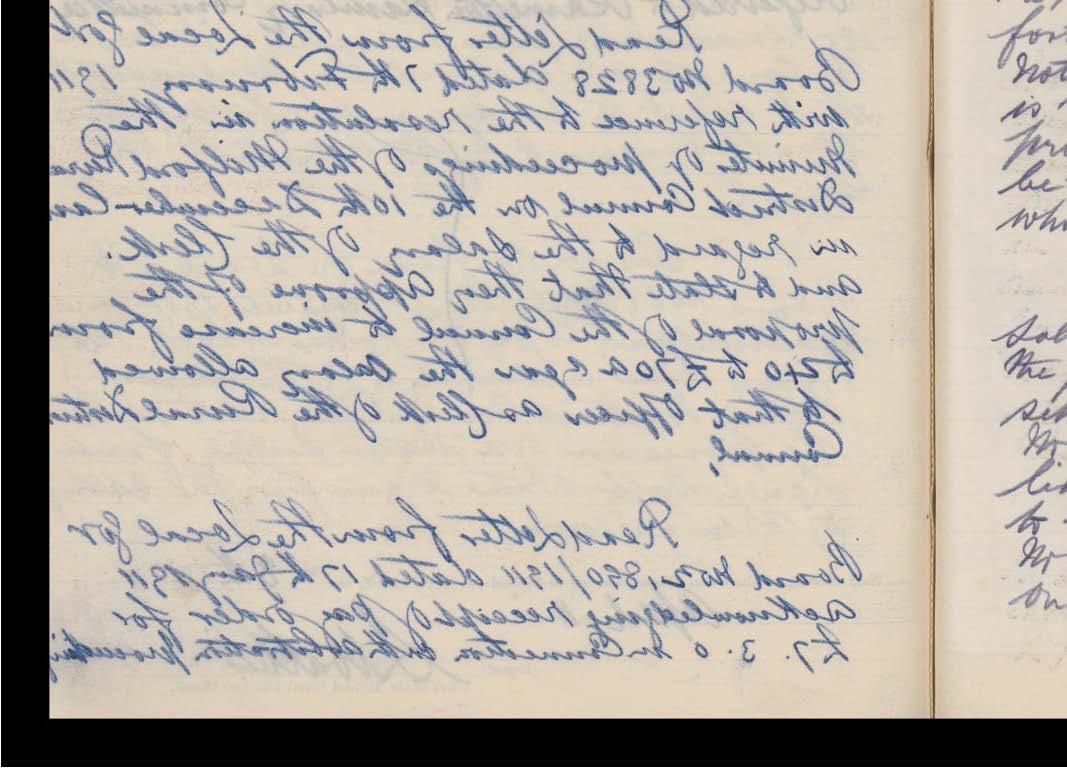 Read Letter from the Local Gov
Board No 3828 dated 7th February 1911
with reference to the resolution in the
Minute of proceedings of the Milford Rura
District Council on the 10th December las
in regard to the Salary of the Clerk.
and to state that they approve of the
proposal of the Council to increase from
£40 to £70 a year the salary allowed
to that Officer as Clerk of the Rural Distri
Council,
Read Letter from the Local Gov
Board No 2,890/1911 dated 17th Jany 1911
acknowledging receipt of pay order for
£7. 3. 0 in Connection with arbitration proceedin
for
Not
is
pr
be
who
Sol
the
se
Mr
li
to
Mr
on